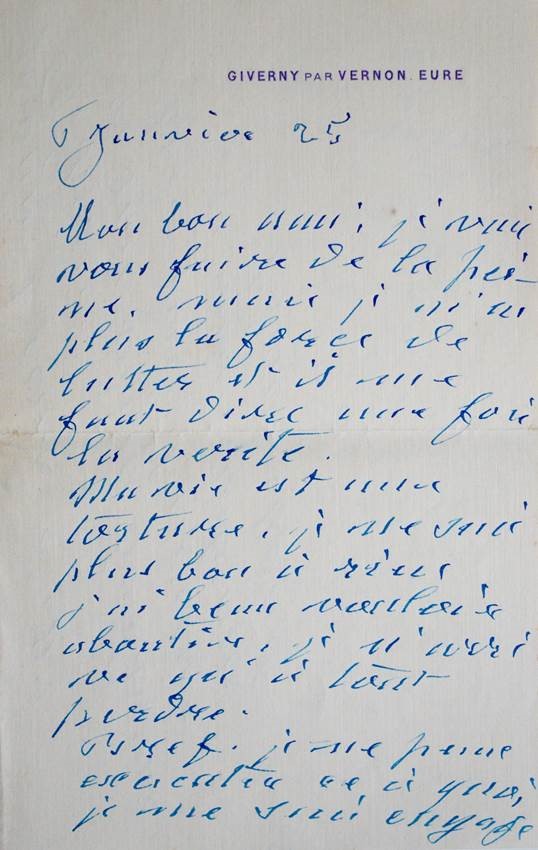 GIVERNY PAR VERNON. EURE
7 Janvier 25
Mon bon ami, je vais
vous faire de la pei-
ne. mais je n'ai
plus la force de
lutter et il me
faut dire une fois
la verité.
Ma vie est une
torture. je ne suis
plus bon à rien
j'ai beau vouloir
aboutir, je n'arri
ve qu'à tout
perdre.
Bref. je ne peux
executer ce à quoi
je me suis engagé